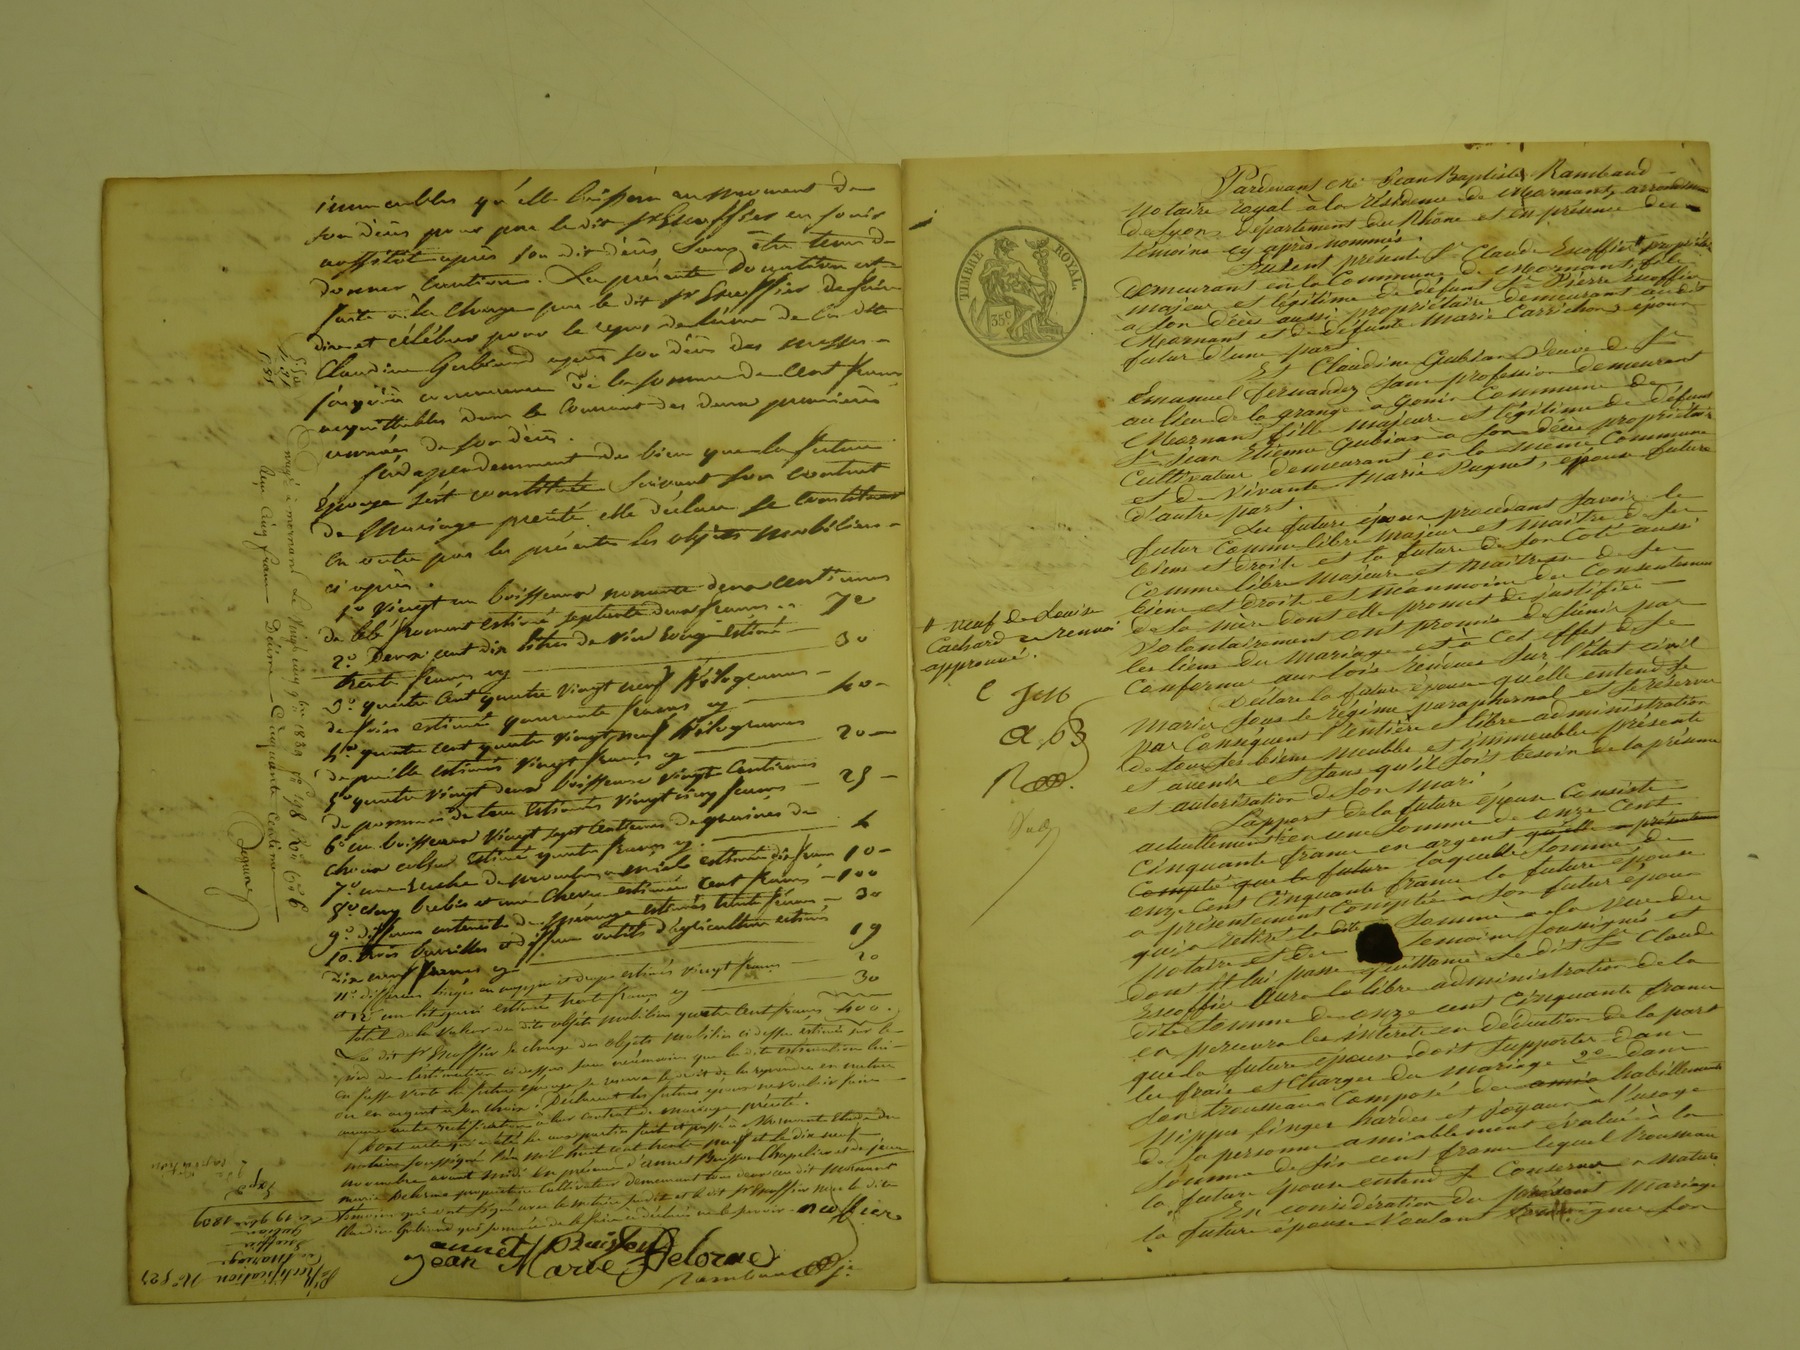 immeubles qu'elle laissera au moment de
son décès pour par le dit Sr Escoffier en jouir
aussitôt après son dit décès sans être tenu de
donner caution. La présente donation est
faite à la charge par le dit Sr Escoffier de faire
dire et célébrer pour le repos de l'âme de la dite
Claudine Gubiand après son décès des messes
jusqu'à concurrence de la somme de cent francs
acquittables dans le courant des deux premières
années de son décès.
Indépendamment des biens que la future
épouse s'est constituée suivant son contrat
de Mariage précité, elle déclare se constituer
en outre par les présentes les objets mobiliers
ci après.
1o Vingt un boisseaux nonante deux centiemes
de blé froment estimé septante deux francs .. 72
2o Deux cent dix litres de vin rouge estimé
trente francs cy 30
3o quatre cent quatre vingt neuf Kilogrammes
de foin estimés quarante francs cy 40
4o quatre cent quatre vingt neuf Kilogrammes
de paille estimés vingt francs cy 20
5o quatre vingt deux boisseaux vingt centiemes
de pommes de terre estimés vingt cinq francs 25
6o un boisseau vingt sept centiemes de graines de
choux colza estimé quatre francs cy. 4
7o une Ruche de mouches à miel estimée dix francs 10
8o cinq brebis et une chevre estimées cent francs 100
9o differens ustensiles de ménage estimés trente francs 30
10o trois barrilles et differens outils d'agriculture estimés
dix neuf francs cy 19
11o differens linges en nappes et draps estimés vingt francs 20
et 12o un lit garni estimé trente francs cy 30
Total de la valeur des dits objets mobiliers quatre cent francs 400.
Le dit Sr Escoffier se charge des objets mobiliers ci dessus estimés sur le
pied de l'estimation ci dessus sans néanmoins que la dite estimation lui
en fasse vente la future épouse se réserve le droit de les reprendre en nature
ou en argent à son choix. Déclarent les futurs époux ne vouloir faire
aucune autre rectification à leur contrat de mariage précité.
Dont acte qui a été lu aux parties fait et passé à Mornant Etude du
notaire soussigné l'an mil huit cent trente neuf et le dix neuf
novembre avant midi en présence d'annet Buisson Chapelier et de jean
marie Delorme propriétaire Cultivateur demeurant tous deux au dit Mornant
témoins qui ont signé avec le notaire susdit et le dit Sr Escoffier non la dite
Claudine Gubiand qui sommée de le faire a déclaré ne le savoir. escoffier
annet Buisson
jean Marie Delorme
Rambaud
Enregé à mornant le vingt cinq 9bre 1839
Reçu cinq francs Décime Cinquante centimes
Rectification No 527
de Mariage
Escoffier
Gubian
du 19 9bre 1839
TIMBRE ROYAL
35c
Pardevant Me Jean Baptiste Rambaud
notaire royal à la résidence de Mornant, arrondissement
de Lyon, département du Rhône et en présence des
témoins cy après nommés.
Furent présents Sr Claude Escoffier propriétaire
demeurant en la Commune de Mornant, fils
majeur et légitime de défunt Sr Pierre Escoffier
à son décès aussi propriétaire demeurant au dit
Mornant et de défunte Marie Carrichon, époux
futur d'une part.
Et Claudine Gubian Veuve de Sr
Emanuel fernandez sans profession demeurant
au lieu de la grange à Gonin Commune de
Mornant fille majeure et légitime de défunt
Sr Jean Etienne Gubian à son décès propriétaire
Cultivateur demeurant en la même Commune
et de vivante Marie Puguet, épouse future
d'autre part.
Les futurs époux procédant savoir le
futur comme libre majeur et maître de ses
biens et droits et la future de son côté aussi
comme libre majeure et maîtresse de ses
biens et droits et néanmoins du consentement
de sa mère dont elle promet de justifier
Volontairement ont promis de s'unir par
les liens du mariage et à cet effet de se
conformer aux lois rendues sur l'état civil
Déclare la future épouse qu'elle entend se
marier sous le régime paraphernal et se réserver
par conséquent l'entière et libre administration
de tous ses biens meubles et immeubles présents
et avenir et sans qu'il soit besoin de la présence
et autorisation de son mari
L'apport de la future épouse consiste
actuellement 1o en une somme de onze cent
cinquante francs en argent qu'elle a présentement
comptée que le futur laquelle somme de
onze cent cinquante francs la future épouse
a présentement comptée à son futur époux
qui a retiré la dite somme à la vue du
notaire et des témoins soussignés et
dont il lui passe quittance. Le dit Sr Claude
Escoffier aura la libre administration de la
dite somme de onze cent cinquante francs
en percevra les intérêts en déduction de la part
que la future épouse doit supporter dans
les frais et charges du mariage 2o dans
son trousseau composé de ses habillements
nippes linges hardes et joyaux à l'usage
de sa personne amiablement évalué à la
somme de six cent francs lequel trousseau
la future épouse entend se conserver en nature
En considération du présent mariage
la future épouse voulant témoigner son
# neuf de Louise
Cachard en renvoi
approuvé.
a. B